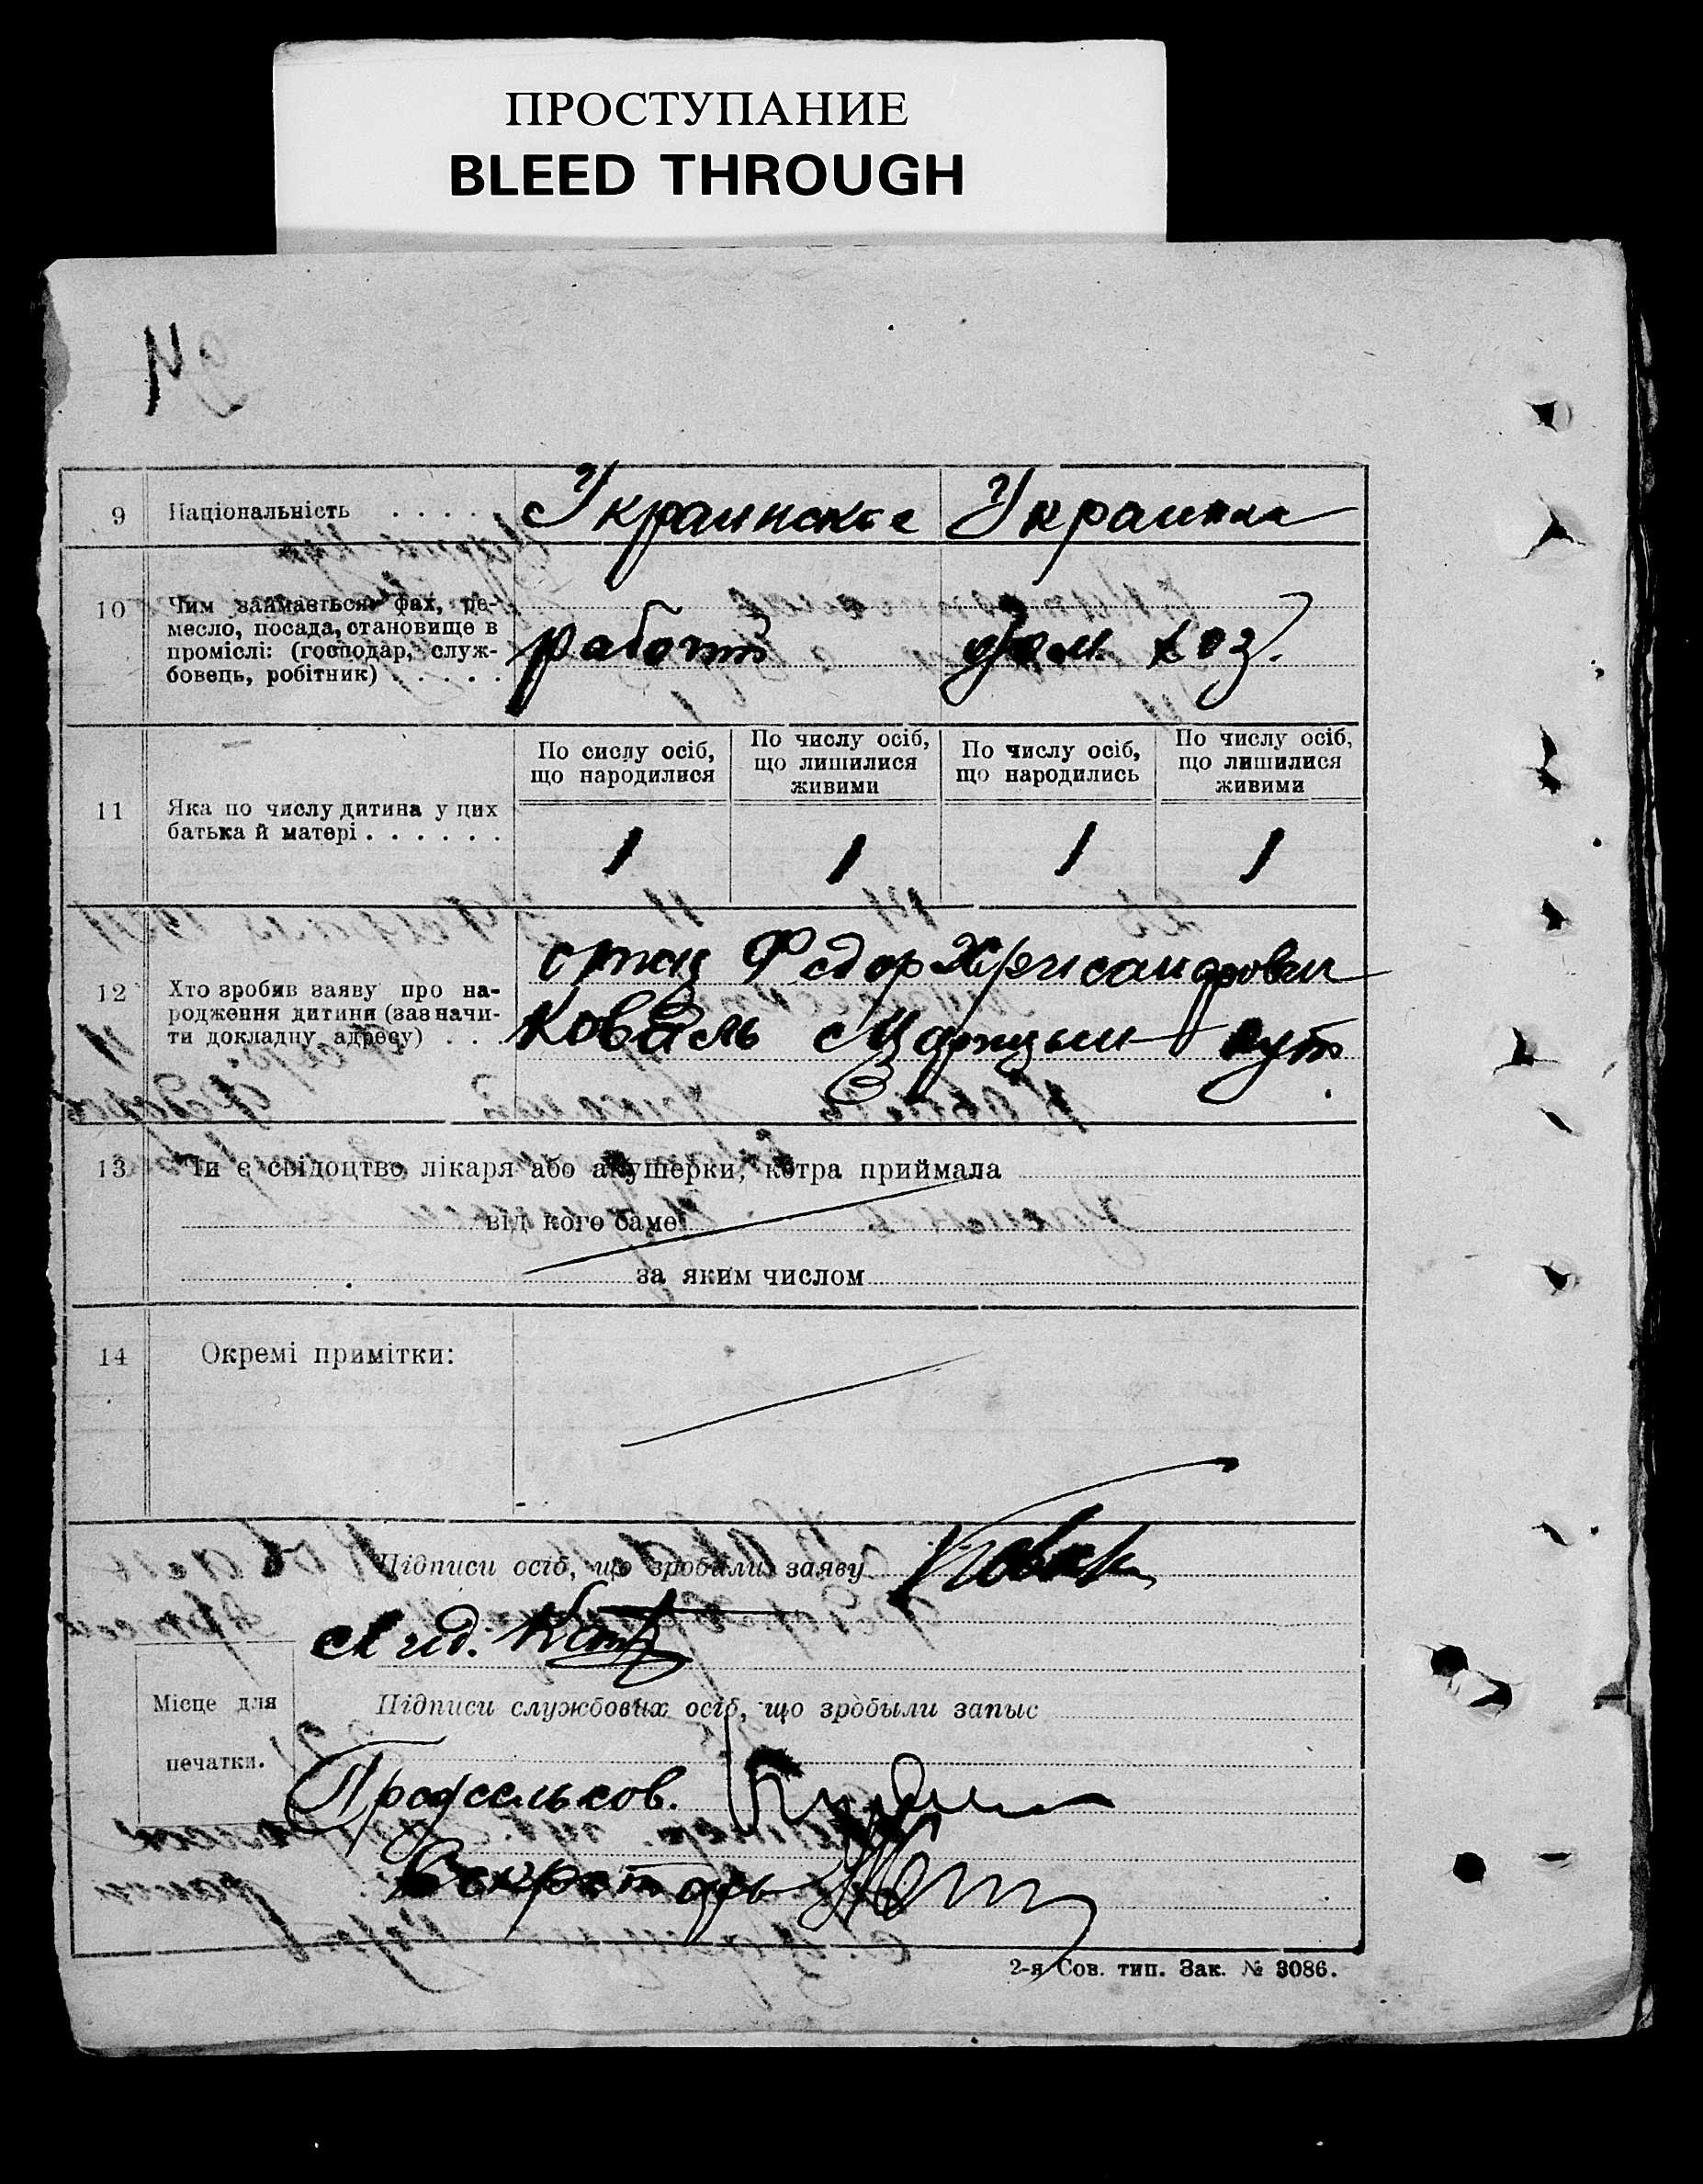 ПРОСТУПАНИЕ
BLEED THROUGH
9 Національність . . . . . Украинское Украинка
10 Чим займається: фах, ре-
месло, посада, становище в
проміслі: (господар, служ-
бовець, робітник) . . . . .
работ дом. хоз.
11 Яка по числу дитина у цих
батька й матері . . . . . .
По сислу осіб,
що народилися
По числу осіб,
що лишилися
живими
По числу осіб,
що народились
По числу осіб,
що лишилися
живими
1 1 1 1
12 Хто зробив заяву про на-
родження дитини (зазначи-
ти докладну адресу) . . .
отец Федор Хрисанфович
Коваль с Царицын Кут
13 Чи є свідоцтво лікаря або акушерки, котра приймала
від кого саме
за яким числом
14 Окремі примітки:
Підписи осіб, що зробили заяву
свид.
Місце для
печатки.
Підписи службових осіб, що зробыли запыс
Предсельсов.
Секретарь
2-я Сов. тип. Зак. № 3086.